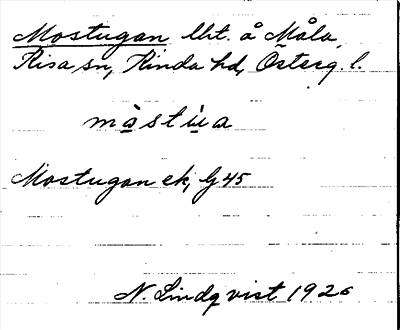 Mostugan lht. å Måla,
Kisa sn, Kinda hd, Österg. l.
màstu̇a
Mostugan ek, G 45
N. Lindqvist 1926